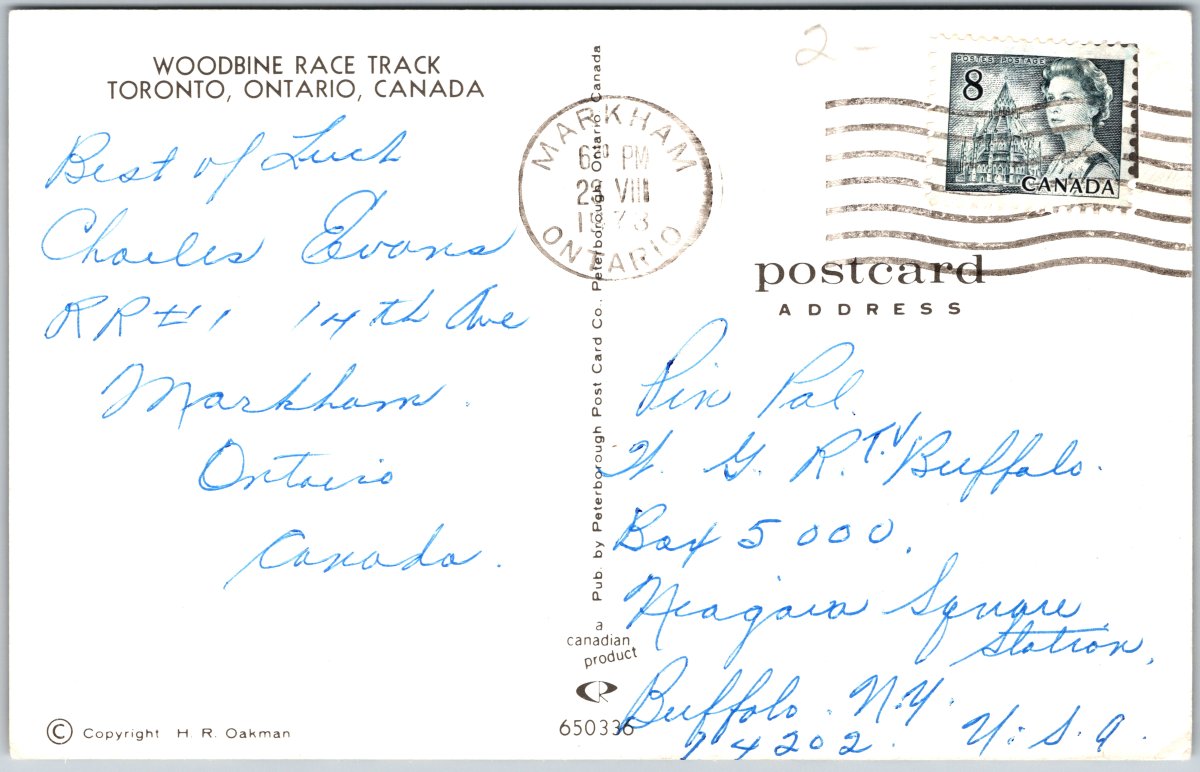 WOODBINE RACE TRACK
TORONTO, ONTARIO, CANADA
Best of Luck
Charles Evans
RR #1 14th Ave
Markham.
Ontario
Canada.
© Copyright H. R. Oakman
Pub. by Peterborough Post Card Co., Peterborough, Ontario, Canada
a
canadian
product
CR
650336
2 -
MARKHAM
6 PM
29 VIII
1973
ONTARIO
POSTES POSTAGE
8
CANADA
postcard
ADDRESS
Pin Pal.
W. G. R. T.V Buffalo.
Box 5000,
Niagara Square
Station,
Buffalo. N.Y.
14202. U.S.A.